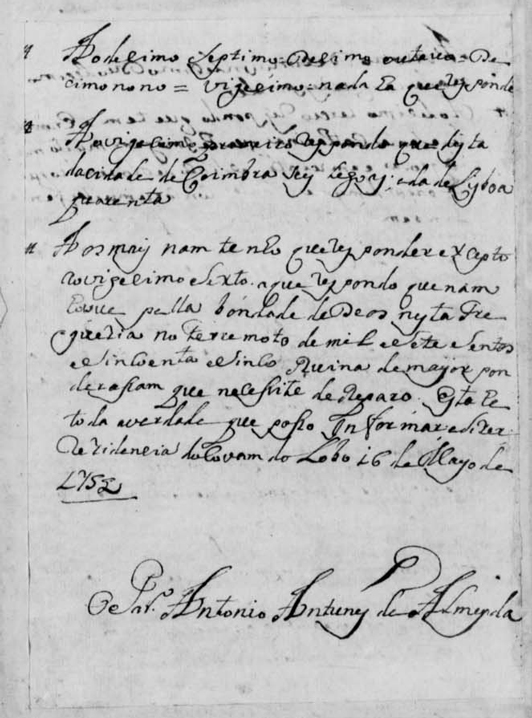 Ao desimo septimo = Desimo outavo = De
cimo nono = vigesimo = nada ha que responde
Ao vigecimo primeiro respondo que dista
da cidade de Coimbra seis legoas; e da de Lixboa
quarenta
Aos mais nam tenho que responder excepto
ao vigesimo e sexto. a que respondo que nam
houve pella bondade de Deos nesta Fre
guezia no terremoto de mil e sete e sentos
e sincoenta e sinco Ruina de mayor pon
derasam que necessite de Reparo. Esta he
toda a verdade que posso Informar e dizer.
Rezidencia do Covam do Lobo 16 de Mayo de
1758
O Par.º Antonio Antunes de Almeyda